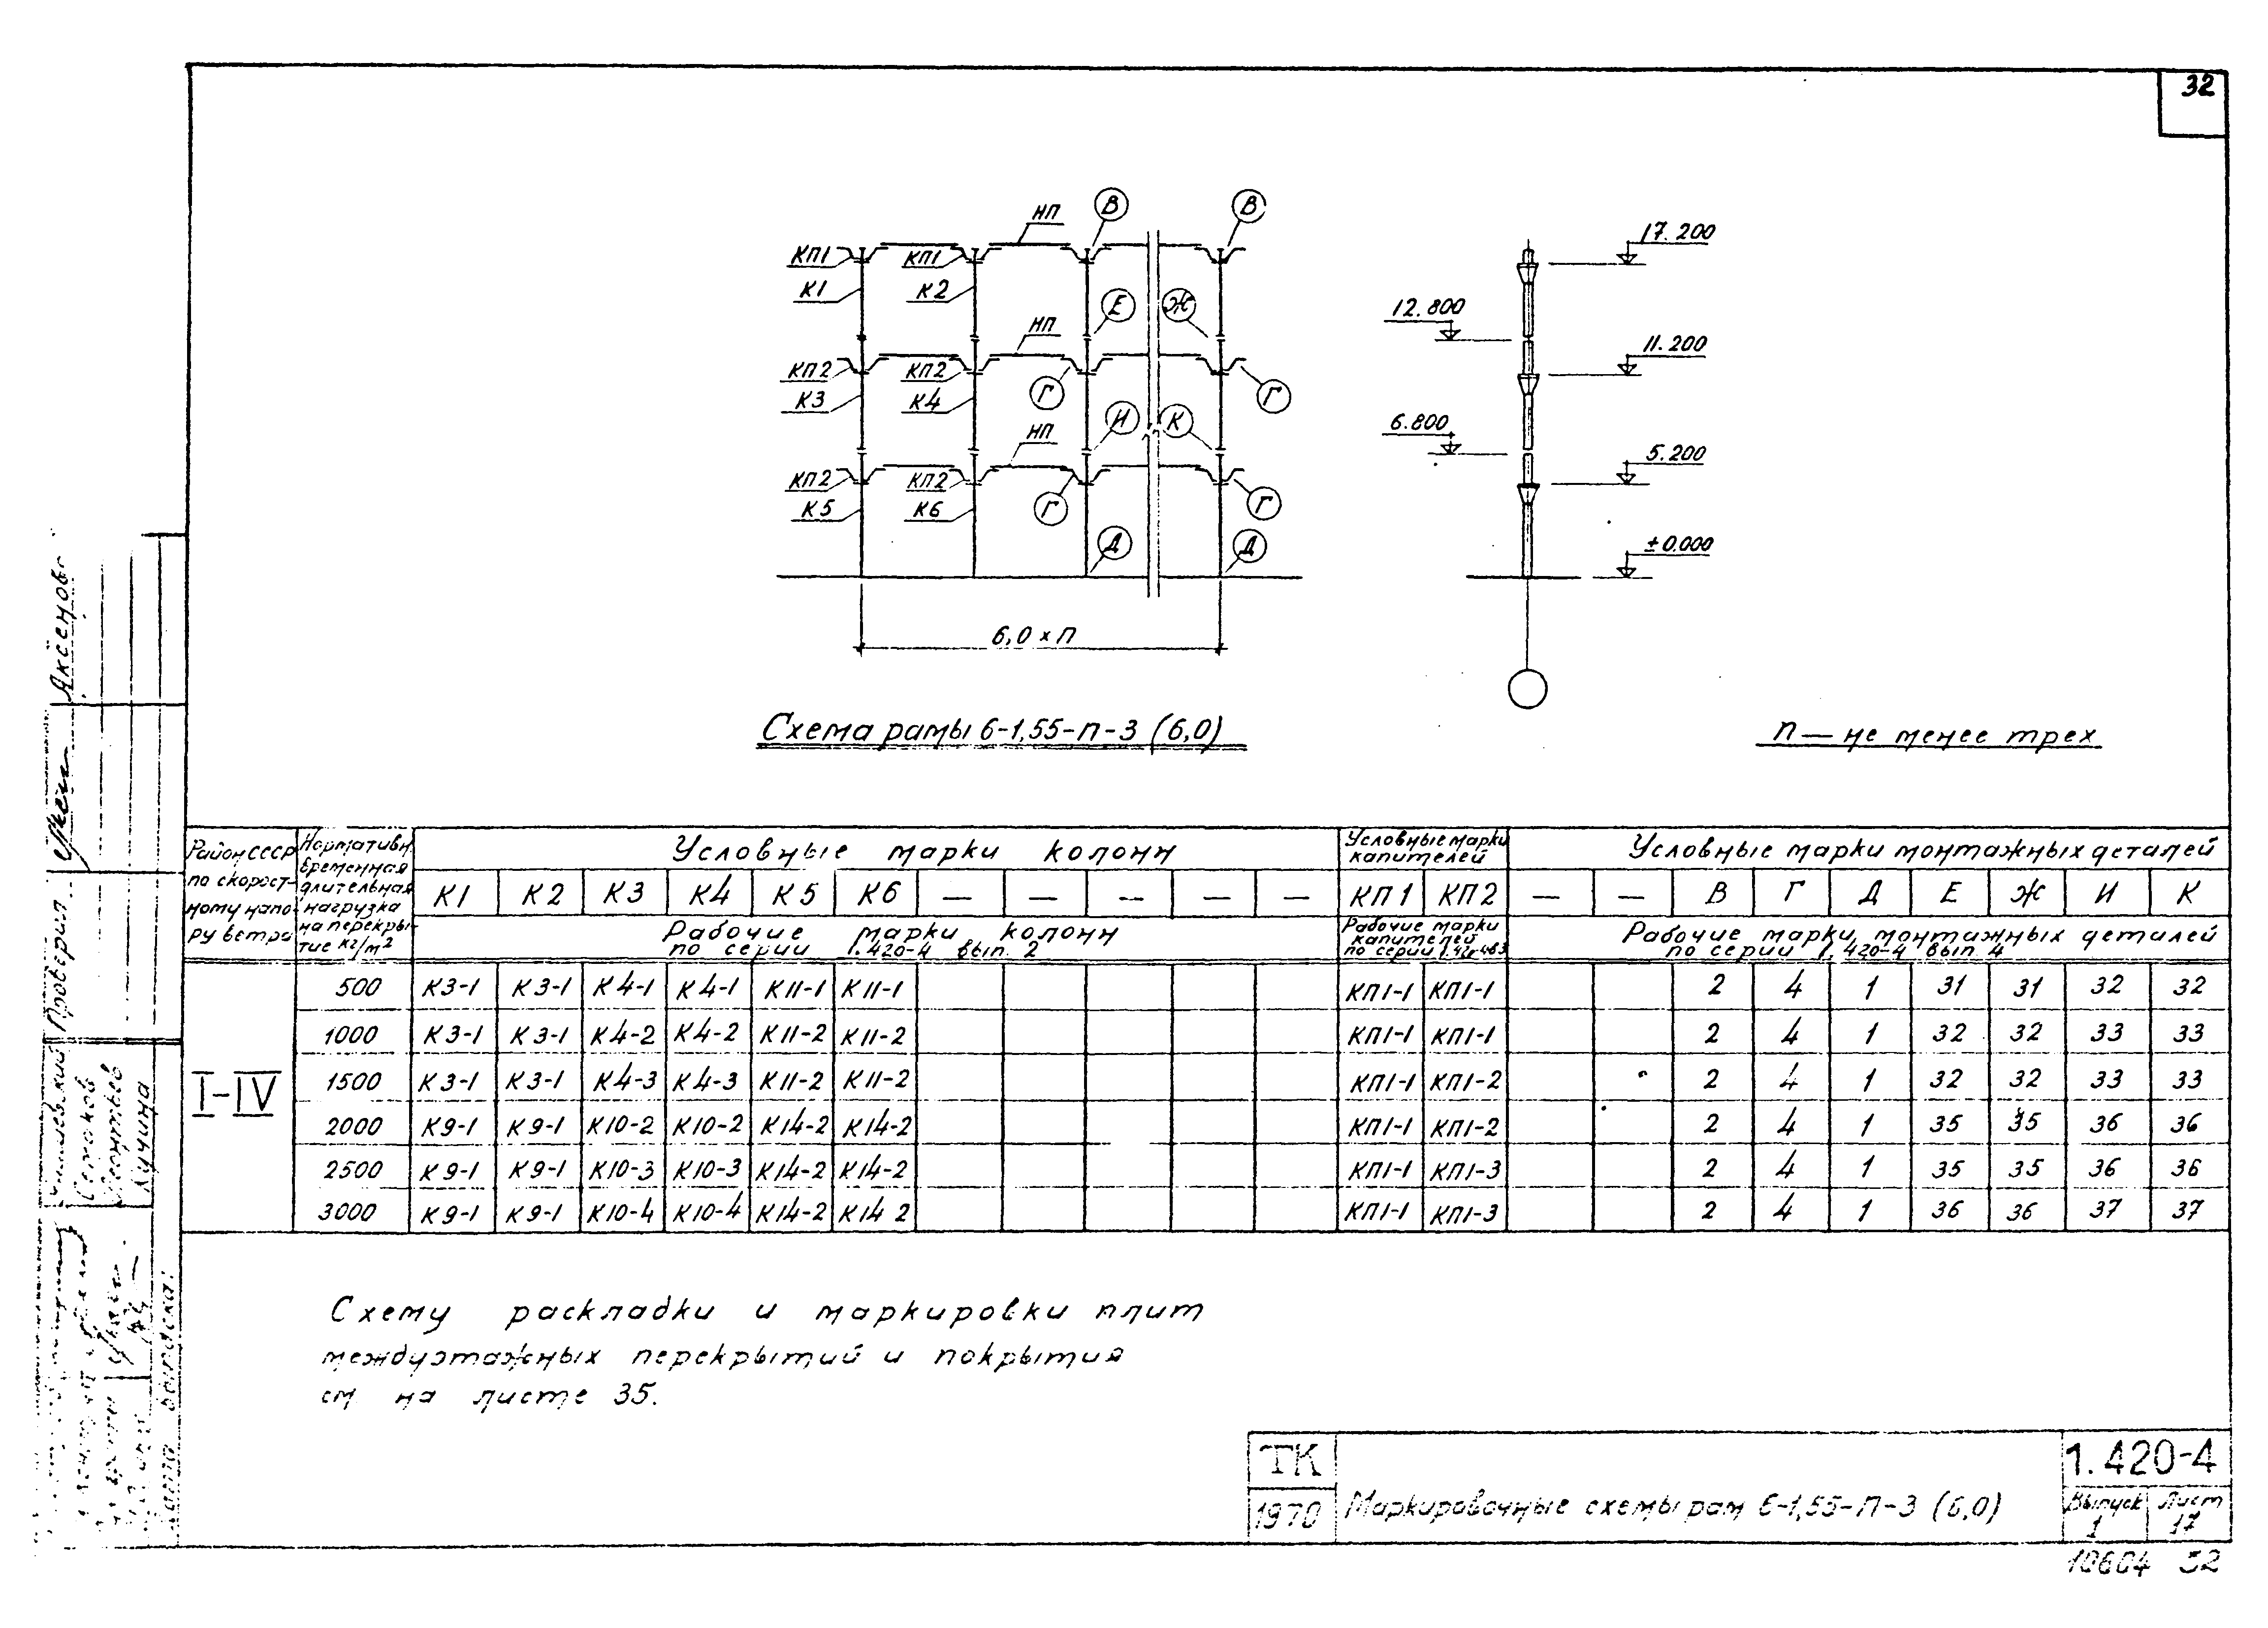 32
НП В В
КП1 КП1
К1 К2
Е Ж
НП
КП2 КП2
К3 К4
Г Г
И К
НП
КП2 КП2
К5 К6
Г Г
Д Д
6,0 × П
17.200
12.800
11.200
6.800
5.200
±0.000
Схема рамы 6-1,55-п-3 (6,0)
п — не менее трех
Район СССР по скорост-ному напо-ру ветра
Нормативн. временная длительная нагрузка на перекры-тие кг/м²
Условные марки колонн
Условные марки капителей
Условные марки монтажных деталей
К1 К2 К3 К4 К5 К6 — — — — — КП1 КП2 — — В Г Д Е Ж И К
Рабочие марки колонн по серии 1.420-4 вып. 2
Рабочие марки капителей по серии
Рабочие марки монтажных деталей по серии 1.420-4 вып. 4
I-IV
500 К3-1 К3-1 К4-1 К4-1 К11-1 К11-1 КП1-1 КП1-1 2 4 1 31 31 32 32
1000 К3-1 К3-1 К4-2 К4-2 К11-2 К11-2 КП1-1 КП1-1 2 4 1 32 32 33 33
1500 К3-1 К3-1 К4-3 К4-3 К11-2 К11-2 КП1-1 КП1-2 2 4 1 32 32 33 33
2000 К9-1 К9-1 К10-2 К10-2 К14-2 К14-2 КП1-1 КП1-2 2 4 1 35 35 36 36
2500 К9-1 К9-1 К10-3 К10-3 К14-2 К14-2 КП1-1 КП1-3 2 4 1 35 35 36 36
3000 К9-1 К9-1 К10-4 К10-4 К14-2 К14 2 КП1-1 КП1-3 2 4 1 36 36 37 37
Схему раскладки и маркировки плит
междуэтажных перекрытий и покрытия
см на листе 35.
ТК
1970
Маркировочные схемы рам 6-1,55-П-3 (6,0)
1.420-4
Выпуск 1
Лист 17
10604 32
Проверил
Лучина